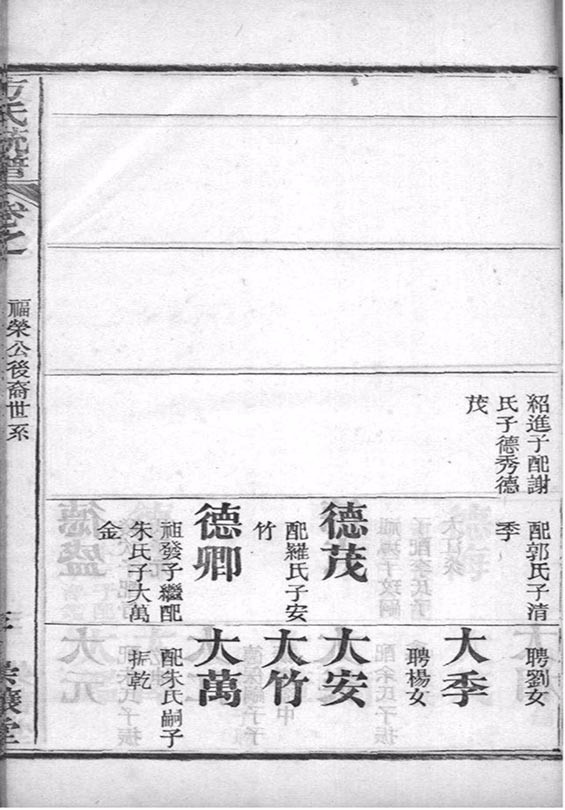 紹進子配謝
氏子德秀德
茂
配郭氏子清
季
德茂
配羅氏子安
竹
德卿
祖發子繼配
朱氏子大萬
金
聘劉女
大季
聘楊女
大安
大竹
大萬
配朱氏嗣子
振乾
方氏統譜
卷之
福榮公後裔世系